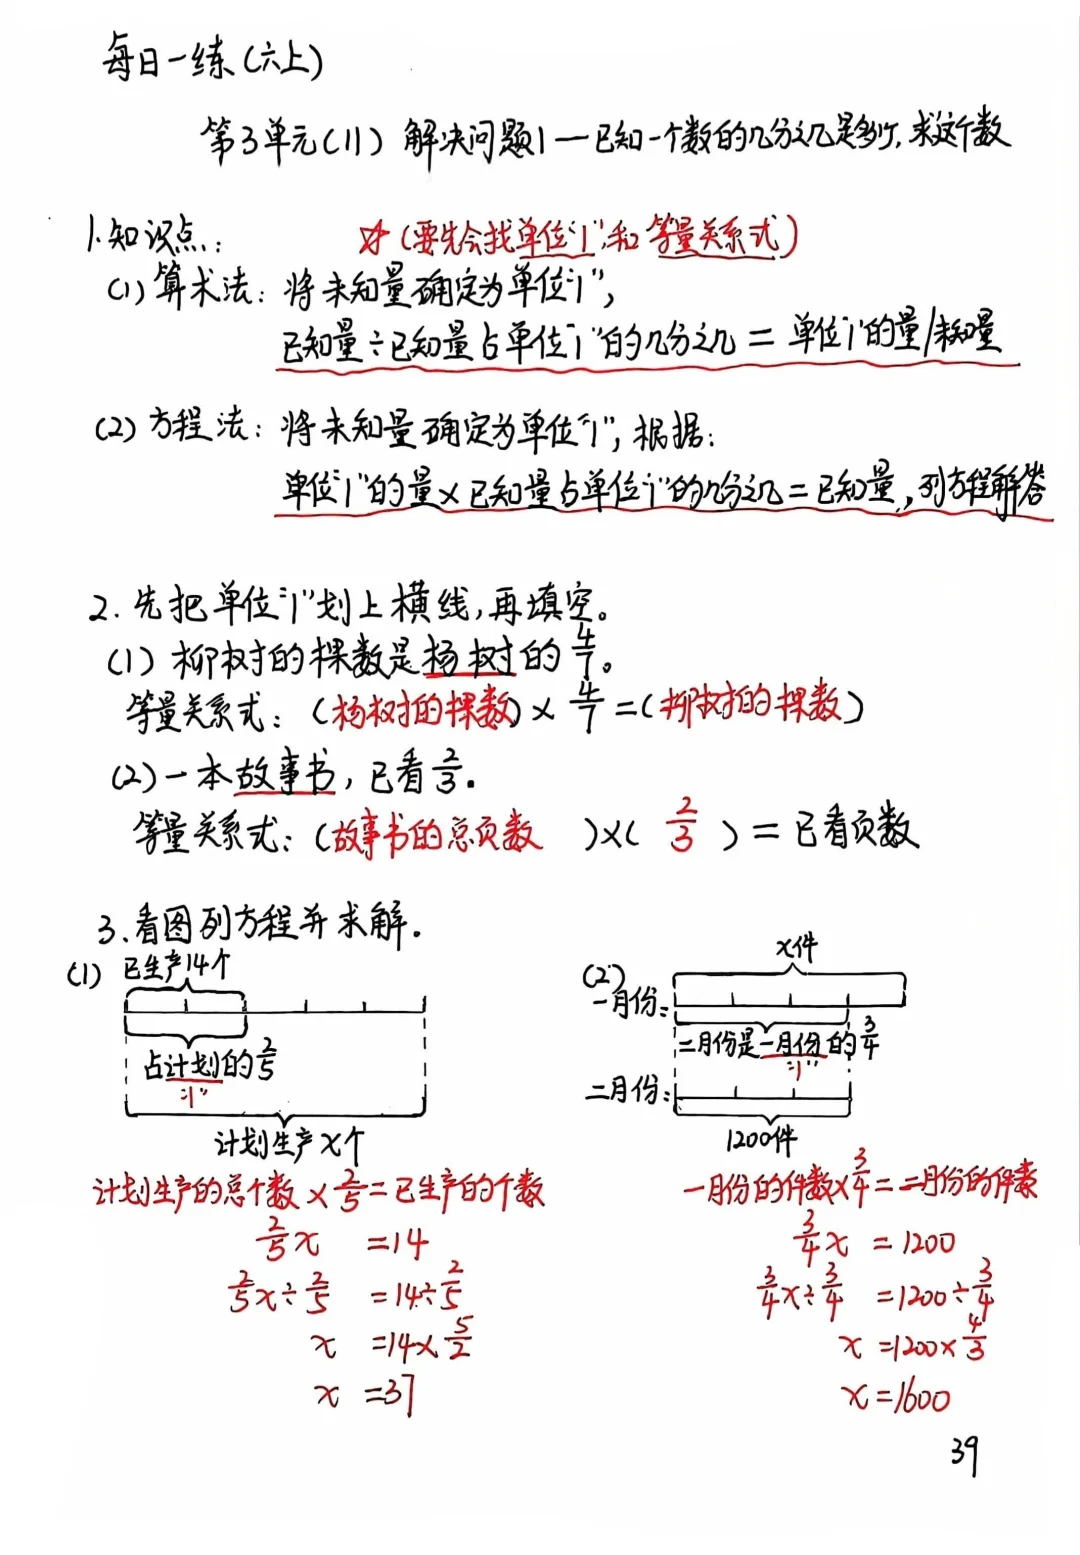 每日一练(六上)
第3单元(11) 解决问题1—已知一个数的几分之几是多少,求这个数
1.知识点: ☆(要先会找单位"1"和等量关系式)
(1)算术法: 将未知量确定为单位"1",
已知量÷已知量占单位"1"的几分之几=单位"1"的量/未知量
(2)方程法: 将未知量确定为单位"1",根据:
单位"1"的量×已知量占单位"1"的几分之几=已知量,列方程解答
2.先把单位"1"划上横线,再填空。
(1)柳树的棵数是杨树的4/7。
等量关系式:(杨树的棵数)×4/7=(柳树的棵数)
(2)一本故事书,已看2/3.
等量关系式:(故事书的总页数 )×( 2/3 )=已看页数
3.看图列方程并求解.
(1) 已生产14个
占计划的2/5
"1"
计划生产x个
计划生产的总个数×2/5=已生产的个数
2/5x =14
2/5x÷2/5 =14÷2/5
x =14×5/2
x =37
(2) x件
一月份:
二月份是一月份的3/4
"1"
二月份:
1200件
一月份的件数×3/4=二月份的件数
3/4x =1200
3/4x÷3/4 =1200÷3/4
x =1200×4/3
x=1600
39